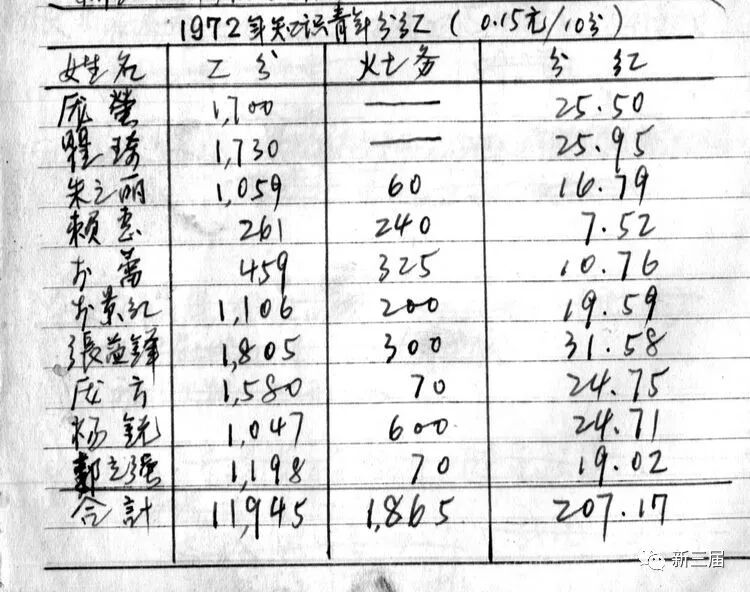 1972年知识青年分红（0.15元/10分）
姓名 工分 灶务 分红
1,700 —— 25.50
瞿琦 1,730 —— 25.95
朱之丽 1,059 60 16.79
賴 261 240 7.52
459 325 10.76
1,106 200 19.59
張益鋒 1,805 300 31.58
1,580 70 24.75
杨 1,047 600 24.71
鄭立强 1,198 70 19.02
合計 11,945 1,865 207.17
新三届